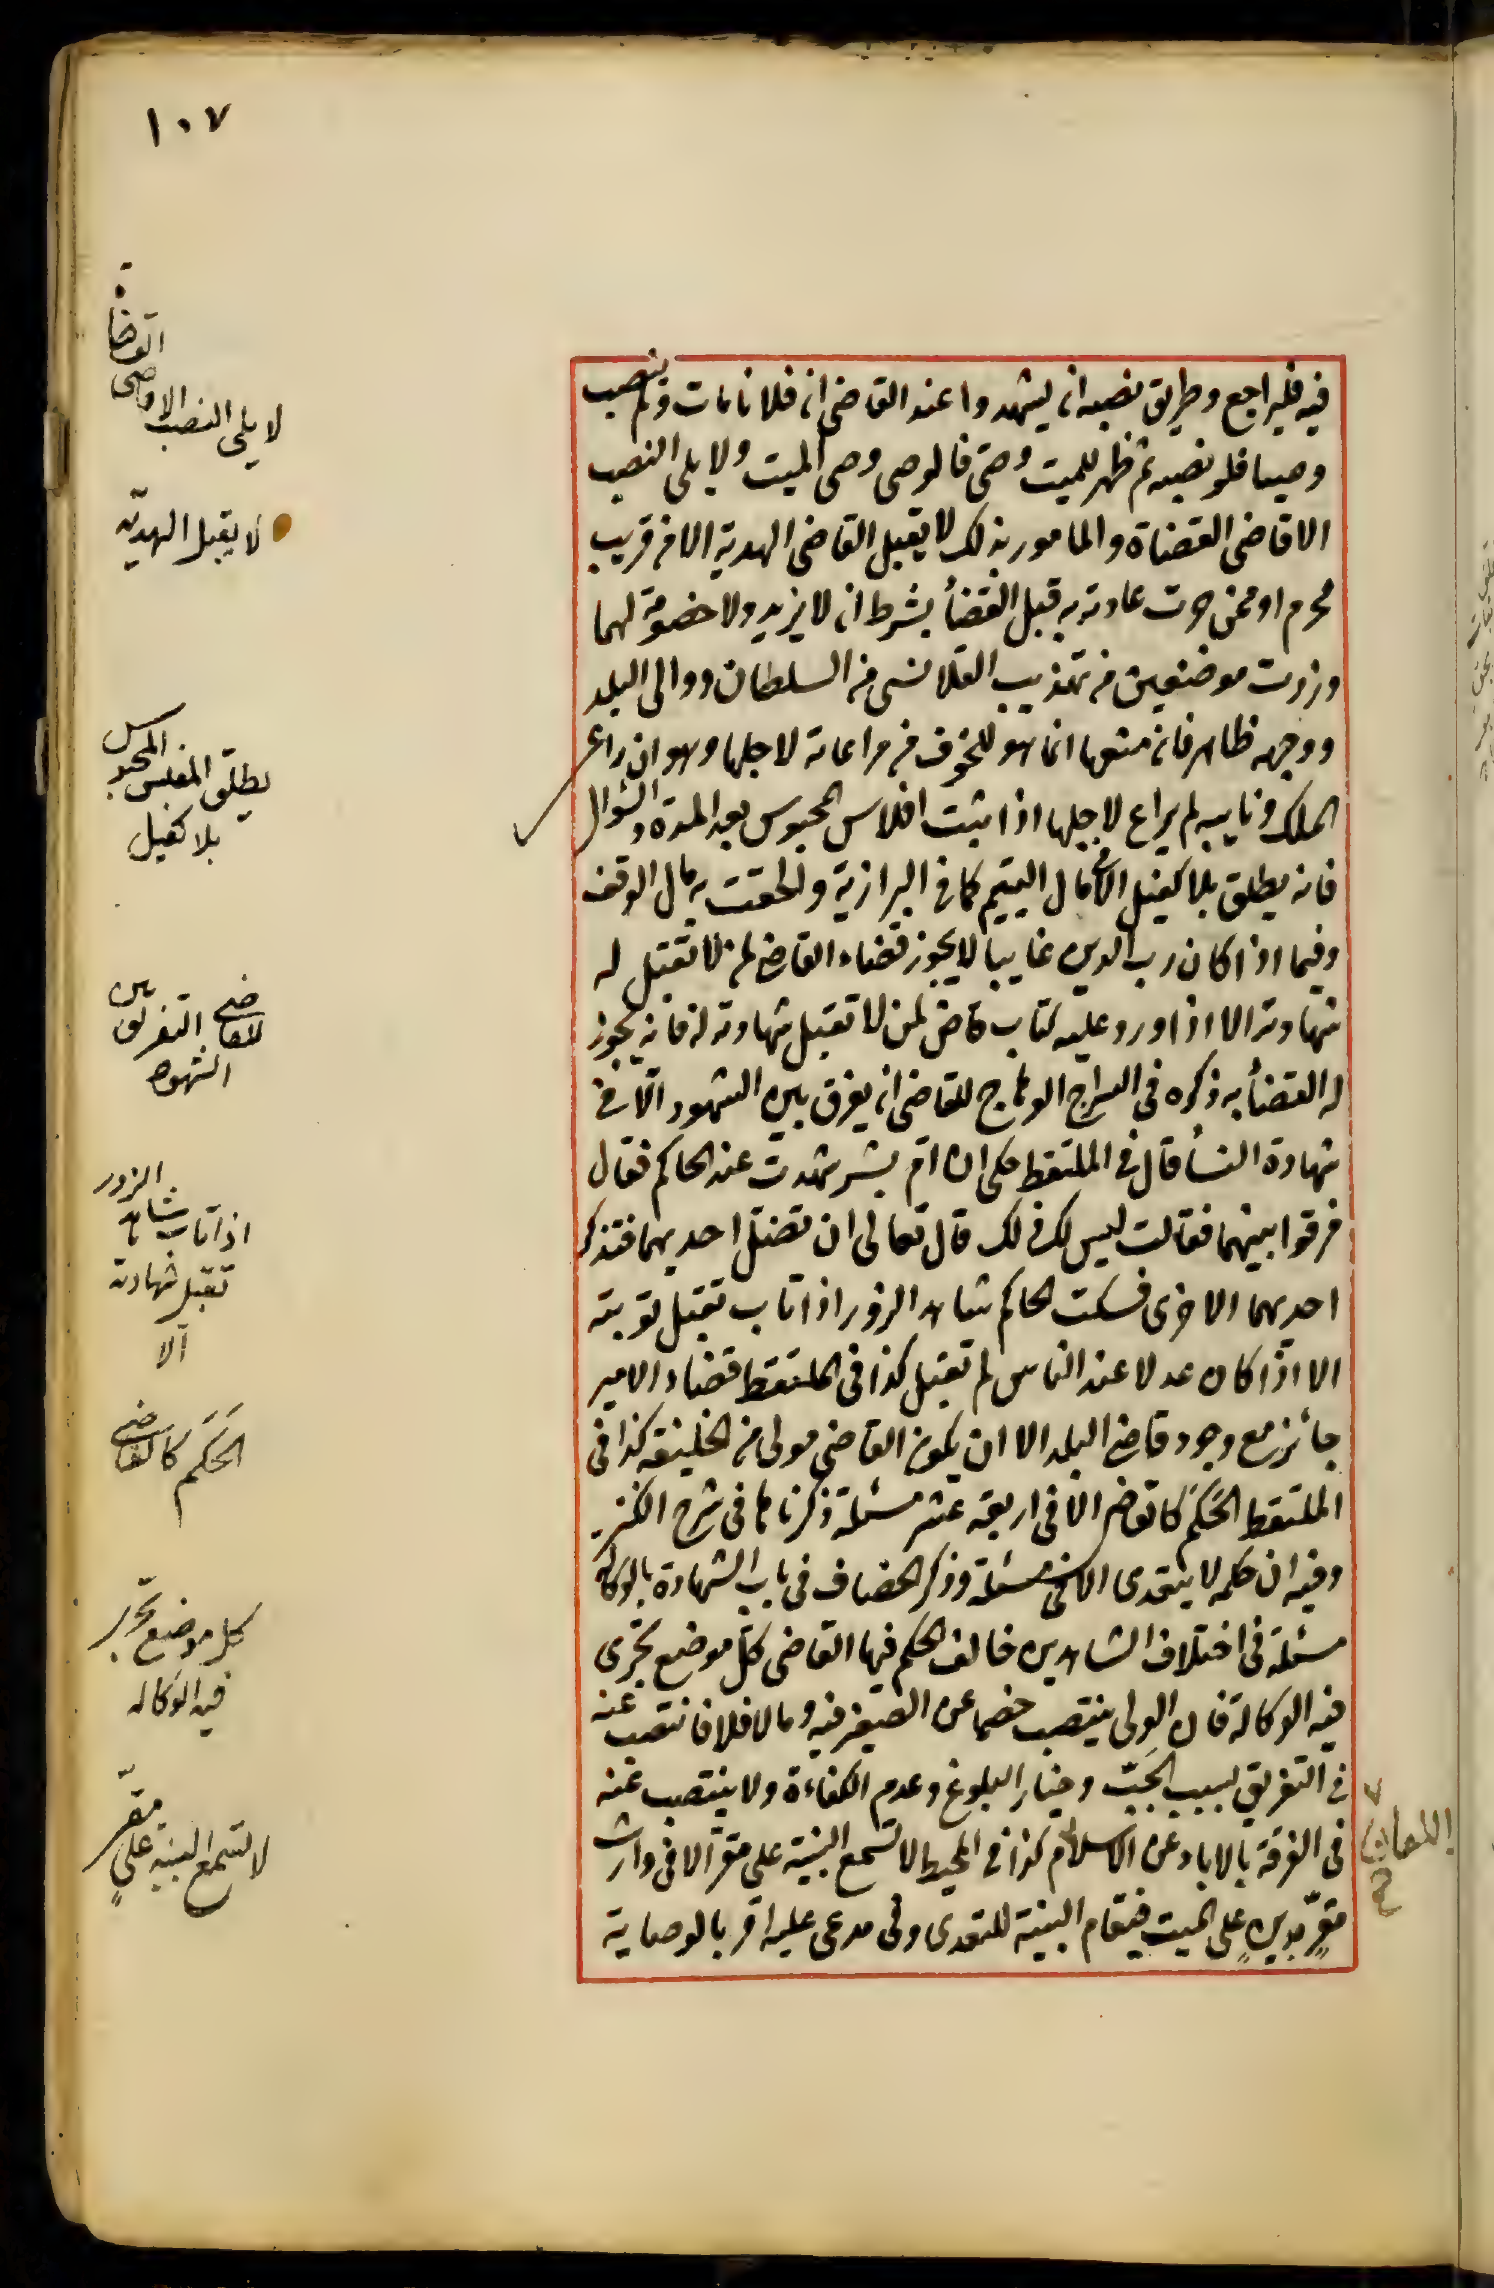 ١٠٧
فيه فليراجع وطريق نصبه ان يشهدوا عند القاضى ان فلانا مات ولم ينصب
وصيا فلو نصبه ثم ظهر للميت وصى فالوصى وصى الميت ولا يلى النصب
الا قاضى القضاة والمامور بذلك لا يقبل القاضى الهدية الا من قريب
محرم او ممن جرت عادته به قبل القضأ بشرط ان لا يزيد ولا خصومة لهما
وزدت موضعين من تهذيب القلانسى من السلطان ووالى البلد
ووجهه ظاهر فان منعها انما هو للخوف من مراعاته لاجلها وهو ان راعى
الملك ونايبه لم يراع لاجلها اذا ثبت افلاس المحبوس بعد المدة والسؤال
فانه يطلق بلا كفيل الا فى مال اليتيم كما فى البزازية والحقت به مال الوقف
وفيما اذا كان رب الدين غايبا لا يجوز قضاء القاضى لمن لا تقبل له
شهادته الا اذا ورد عليه كتاب قاض لمن لا تقبل شهادته له فانه يجوز
له القضأ به ذكره فى السراج الوهاج للقاضى ان يفرق بين الشهود الا فى
شهادة النسأ قال فى الملتقط حكى ان ام بشر شهدت عند الحاكم فقال
فرقوا بينهما فقالت ليس لك ذلك قال تعالى ان تضل احديهما فتذكر
احديهما الاخرى فسكت الحاكم شاهد الزور اذا تاب تقبل توبته
الا اذا كان عدلا عند الناس لم تقبل كذا فى الملتقط قضاء الامير
جائز مع وجود قاضى البلد الا ان يكون القاضى مولى من الخليفة كذا فى
الملتقط الحَكَم كالقاضى الا فى اربعة عشر مسئلة ذكرناها فى شرح الكنز
وفيه ان حكمه لا يتعدى الا فى مسئلة وذكر الخصاف فى باب الشهادة بالوكالة
مسئلة فى اختلاف الشاهدين خالف الحكم فيها القاضى كل موضع تجرى
فيه الوكالة فان الولى ينتصب خصما عن الصغير فيه وما لا فلا فانتصب عنه
فى التفريق بسبب الجَبّ وخيار البلوغ وعدم الكفاءة ولا ينتصب عنه
فى الفرقة بالاباء عن الاسلام كذا فى المحيط لا تسمع البينة على مقر الا فى وارث
مقرٍّ بدينٍ على الميت فيقام البينة للتعدى وفى مدعى عليه اقر بالوصاية
لا يلى النصب الا قاضى
القضاة
لا يقبل الهدية
يطلق المفلس المحبوس
بلا كفيل
للقاضى التفريق بين
الشهود
اذا تاب شاهد الزور
تقبل شهادته
الا
الحَكَم كالقاضى
كل موضع تجرى
فيه الوكالة
لا تسمع البينة على مقر
واللعان
صح